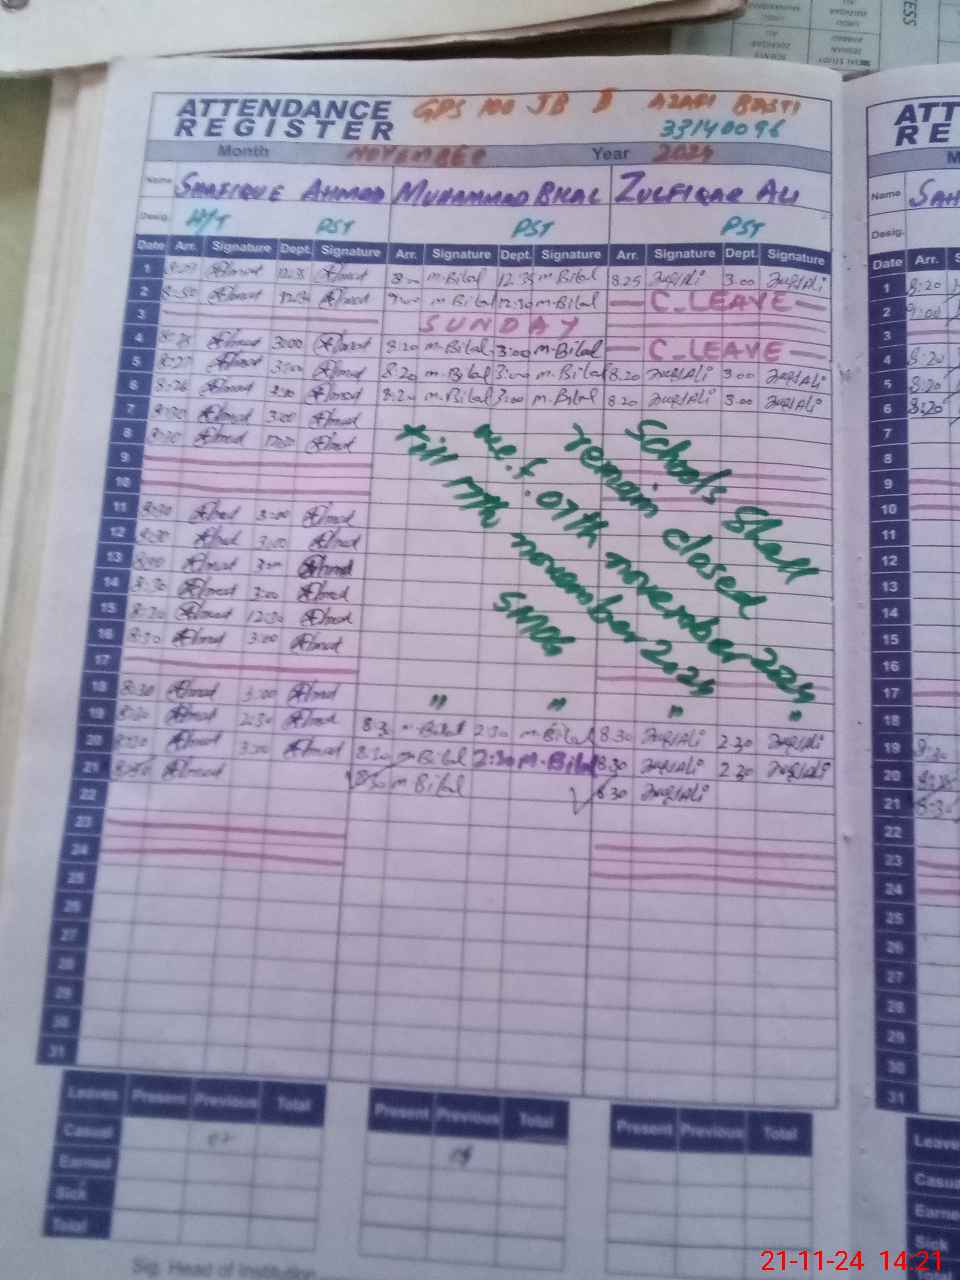 ATTENDANCE REGISTER
GPS 100 JB II AZAFI BASTI
33140096
Month NOVEMBER Year 2024
Name SHAFIQUE AHMAD MUHAMMAD BILAL ZULFIQAR ALI
Desig. H/T PST PST PST
Date Arr. Signature Dept. Signature Arr. Signature Dept. Signature Arr. Signature Dept. Signature
1 Ahmad Ahmad m.Bilal 12.35 m.Bilal 8.25 ZulfiAli 3.00 ZulfiAli
2 Ahmad Ahmad 9:00 m.Bilal 12:30 m.Bilal C_LEAVE
3 SUNDAY
4 Ahmad 3:00 Ahmad 8:20 m.Bilal 3:00 m.Bilal C_LEAVE
5 8:27 Ahmad 3:00 Ahmad 8:20 m.Bilal 3:00 m.Bilal 8.20 ZulfiAli 3.00 ZulfiAli
6 8:26 Ahmad 3:00 Ahmad 8:20 m.Bilal 3:00 m.Bilal 8.20 ZulfiAli 3.00 ZulfiAli
7 Ahmad 3:00 Ahmad
8 Ahmad Ahmad
9
10
11 8:30 Ahmad 3:00 Ahmad
12 8:30 Ahmad 3:00 Ahmad
13 Ahmad 3:00 Ahmad
14 8:30 Ahmad 3:00 Ahmad
15 8:30 Ahmad 12:30 Ahmad
16 8:30 Ahmad 3:00 Ahmad
17
Schools Shall
remain closed
w.e.f 07th november 2024
till 17th november 2024
SMOG
18 8:30 Ahmad 3:00 Ahmad " " " "
19 8:30 Ahmad 2:30 Ahmad 8:30 m.Bilal 2:30 m.Bilal 8.30 ZulfiAli 2.30 ZulfiAli
20 8:30 Ahmad Ahmad 8:30 m.Bilal 2:30 M.Bilal 8.30 ZulfiAli 2.30 ZulfiAli
21 8:30 Ahmad 8:30 m.Bilal 8.30 ZulfiAli
22
23
24
25
26
27
28
29
30
31
Leaves Present Previous Total Present Previous Total Present Previous Total
Casual
Earned
Sick
Total
Sig. Head of Institution
ATT
RE
Name SAH
Desig.
Date Arr. S
1 8:20
2 9:00
3
4 8:20
5 8:20
6 8:20
7
8
9
10
11
12
13
14
15
16
17
18
19
20
21 8:30
22
23
24
25
26
27
28
29
30
31
Leave
Casua
Earne
Sick
21-11-24 14:21